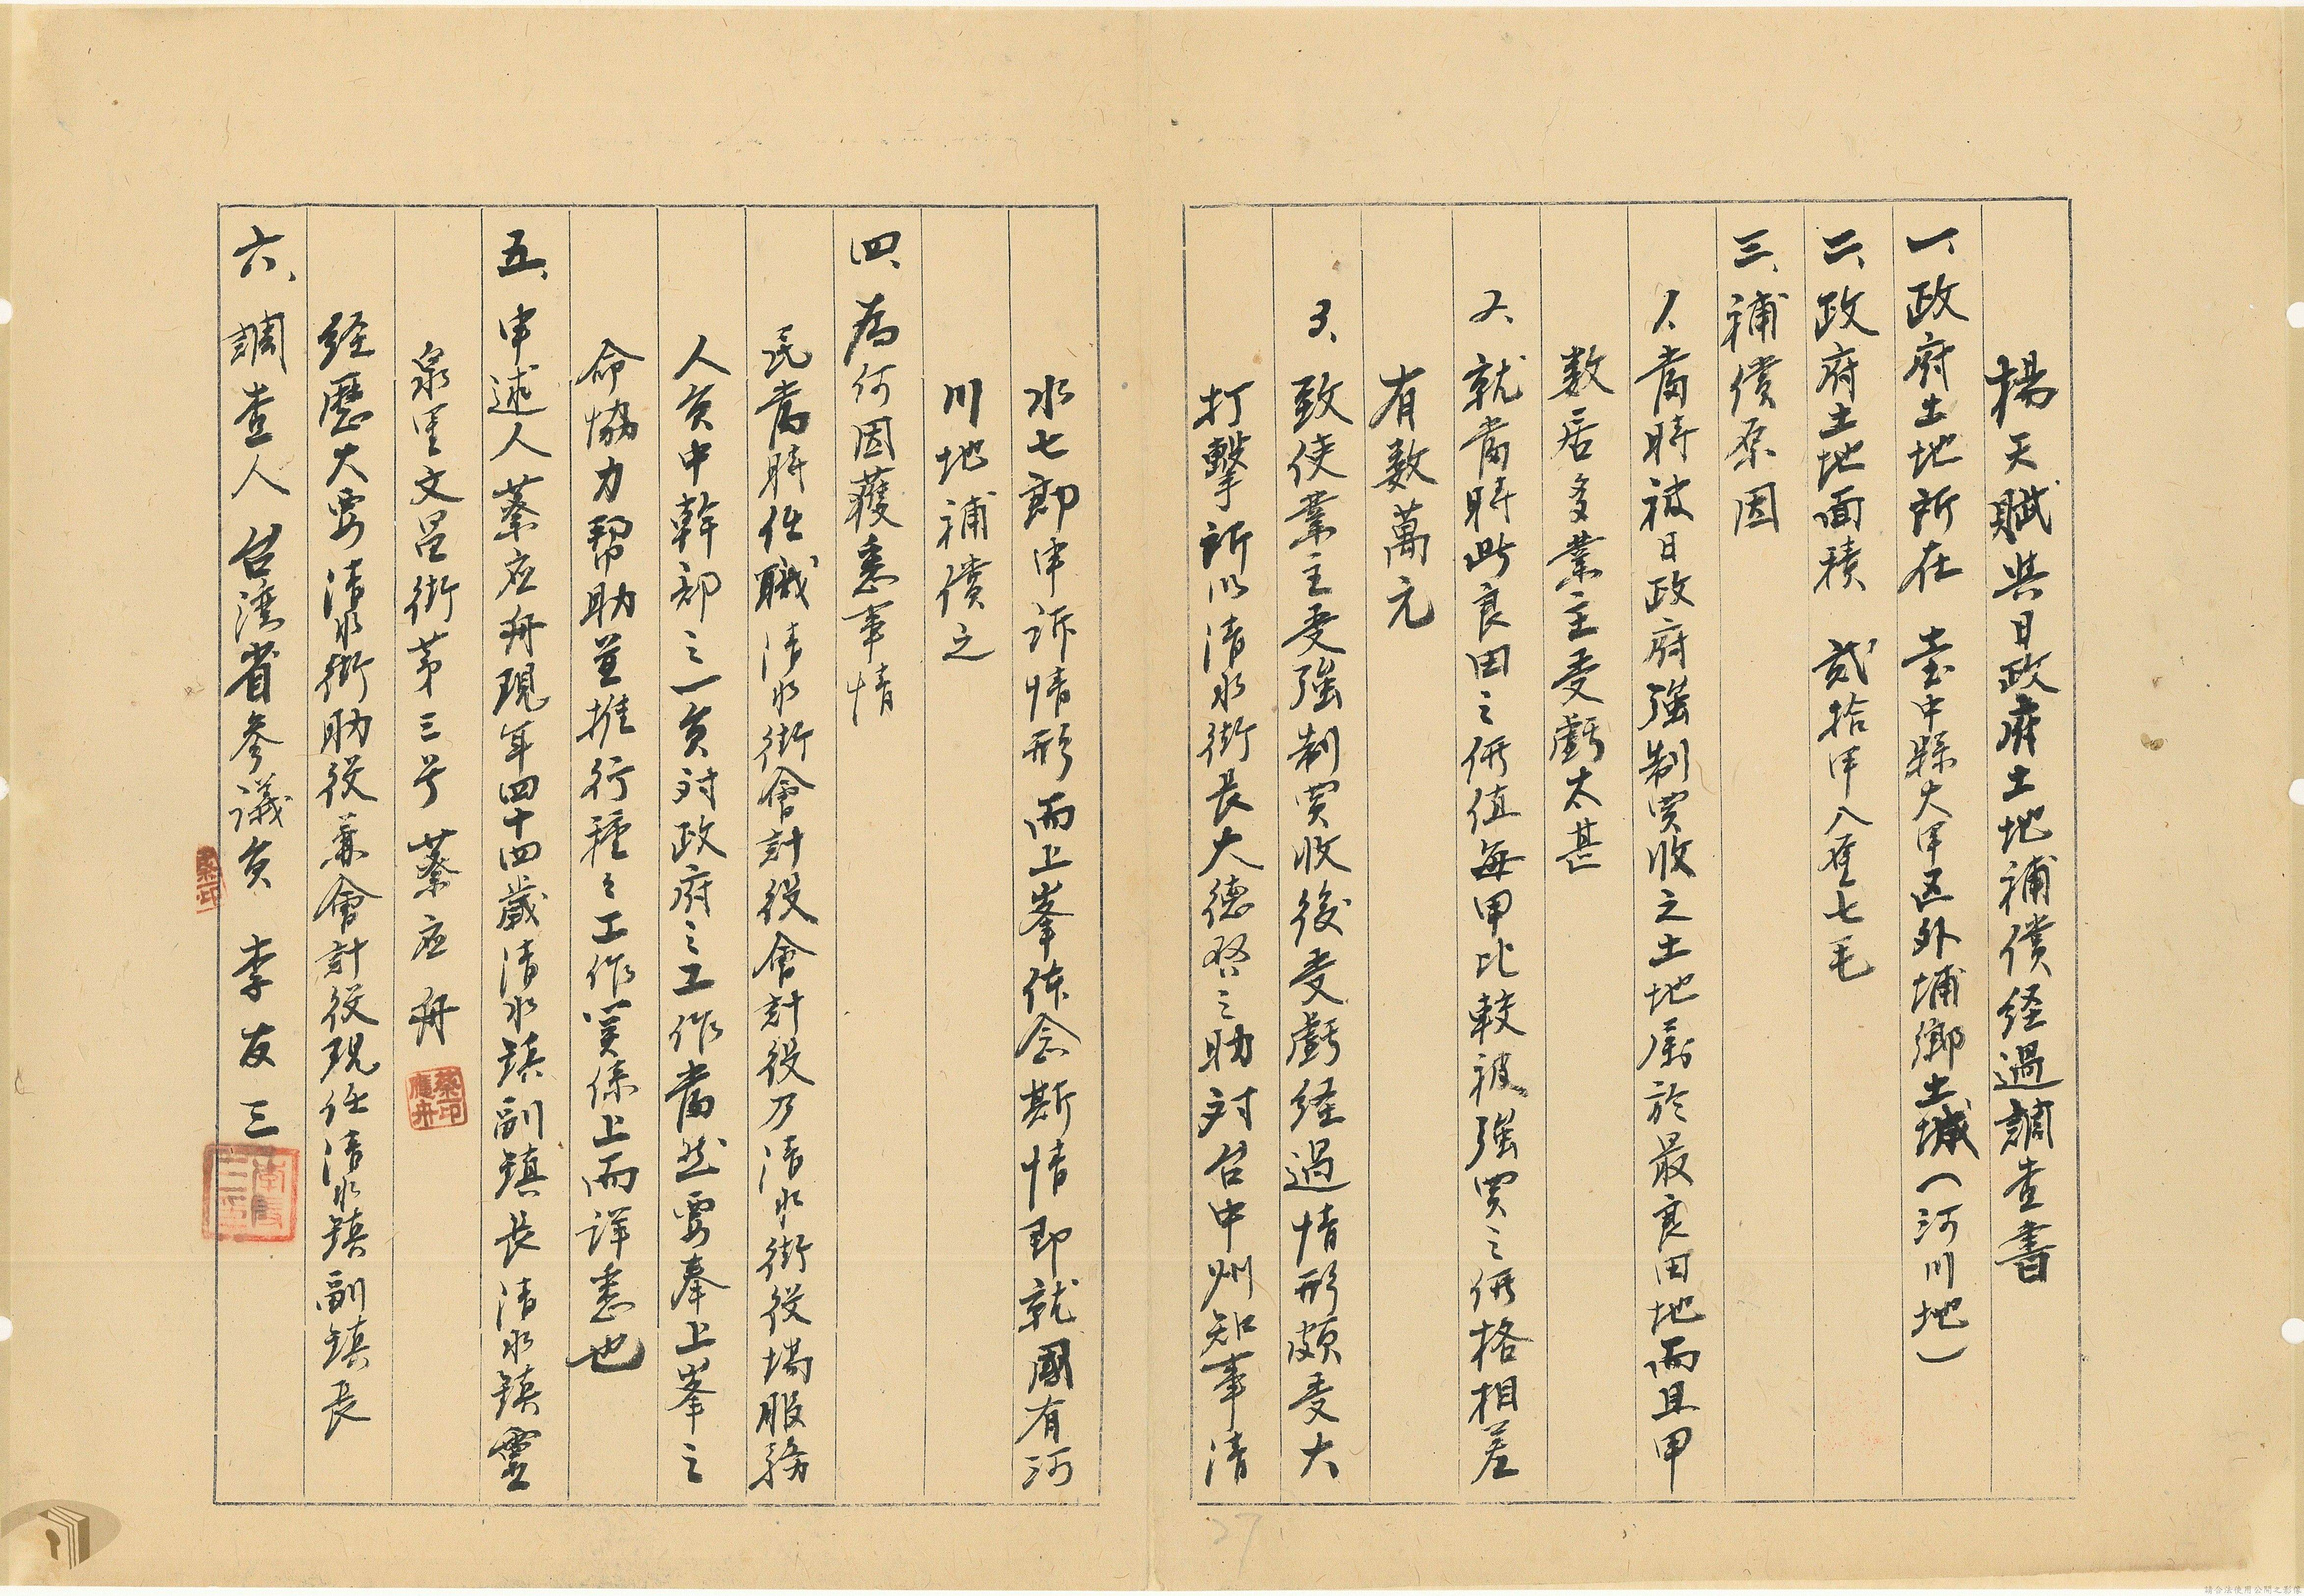 楊天賦與日政府土地補償経過調查書
一、政府土地所在 臺中縣大甲区外埔鄉土城(河川地)
二、政府土地面積 貳拾甲八厘七毛
三、補償原因
1、當時被日政府强制買收之土地屬於最良田地而且甲
数居多業主受虧太甚
2、就當時此良田之価值每甲比較被强買之価格相差
有数萬元
3、致使業主受强制買收後受虧経過情形頗受大
打擊所以清水街長大德 之助対台中州知事清
水七郎申訴情形而上峯体念斯情即就國有河
川地補償之
四、為何因獲悉事情
民當時任職清水街會計役會計役乃清水街役場服務
人員中幹部之一員対政府之工作當然要奉上峯之
命協力幫助並推行種々工作実係上而詳悉也
五、申述人蔡应舟現年四十四歲清水鎮副鎮長清水鎮靈
泉里文昌街第三号 蔡应舟
蔡印應舟
経歷大要清水街助役兼會計役現任清水鎮副鎮長
六、調查人台湾省參議員 李友三
蔡印
李友三印
27
請合法使用公開之影像